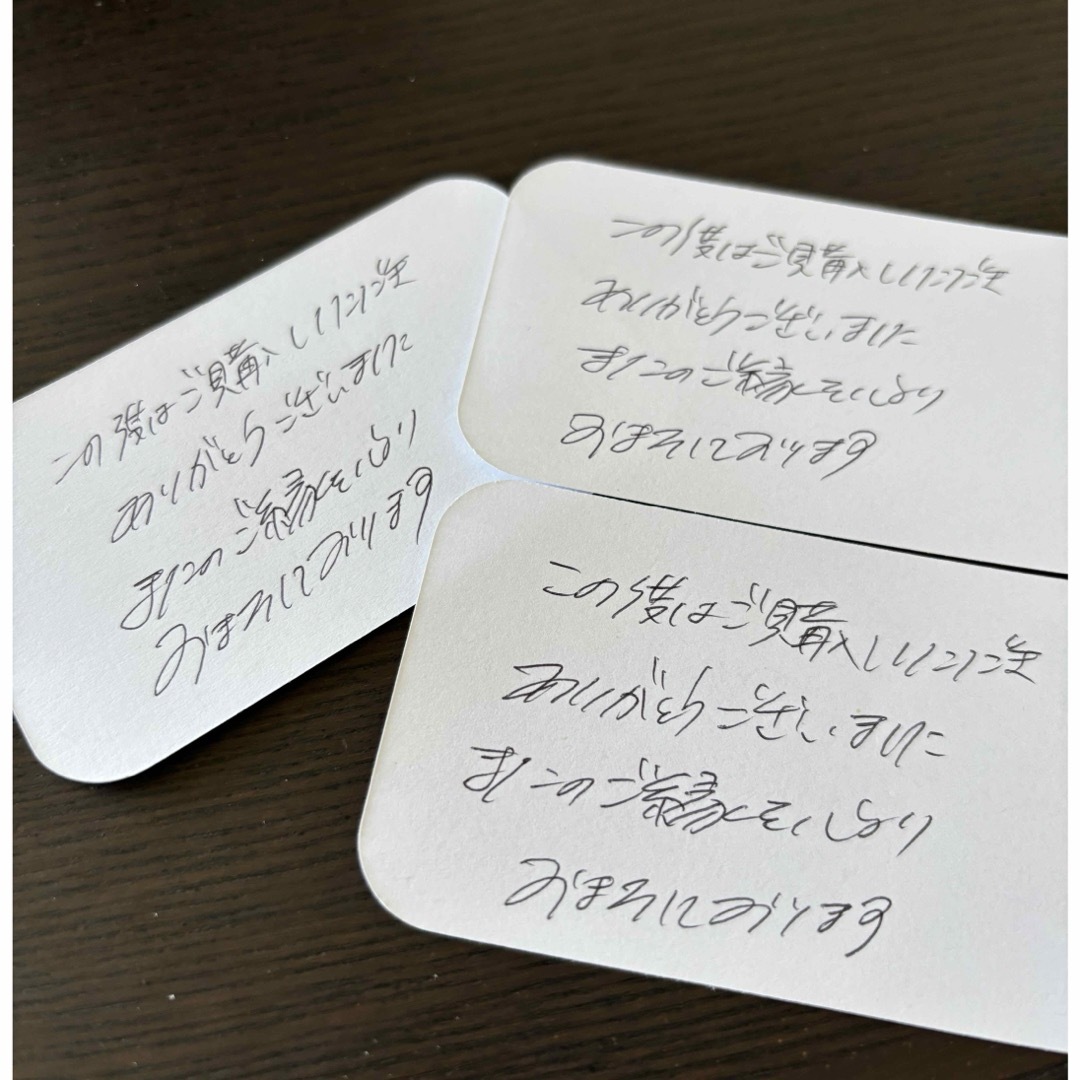 この度はご購入いただき
ありがとうございました
またのご縁を心より
おまちしております
この度はご購入いただき
ありがとうございました
またのご縁を心より
おまちしております
この度はご購入いただき
ありがとうございました
またのご縁を心より
おまちしております